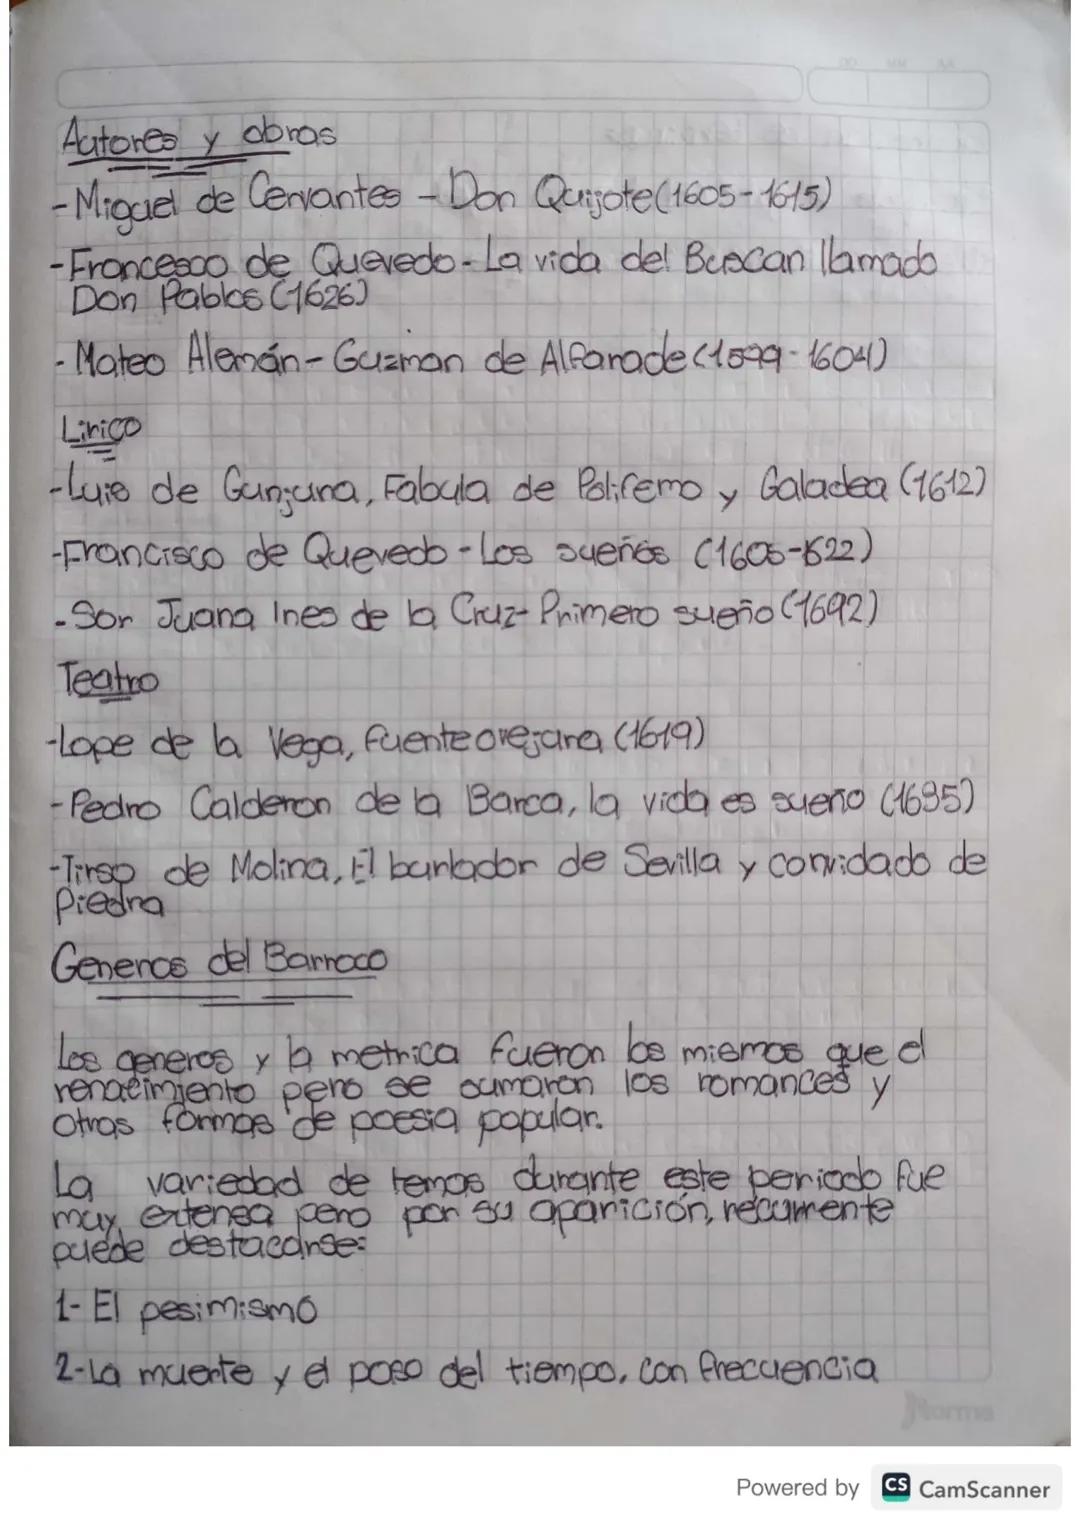 DD MM AA
Autores y obras
- Miguel de Cervantes - Don Quijote (1605-1615)
- Francesco de Quevedo - La vida del Buscan llamado
Don Pablos (1626)
- Mateo Alemán - Guzman de Alfarade (1599-1604)
Lirico
- Luis de Gunjuna, Fabula de Polifemo y Galadea (1612)
- Francisco de Quevedo - Los sueños (1605-1622)
- Sor Juana Ines de la Cruz - Primero sueño (1692)
Teatro
- Lope de la Vega, Fuenteovejuna (1619)
- Pedro Calderon de la Barca, la vida es sueño (1635)
- Tirso de Molina, El burlador de Sevilla y convidado de
Piedra
Generos del Barroco
Los generos y la metrica fueron los mismos que el
renacimiento pero se sumaron los romances y
otras formas de poesia popular.
La variedad de temas durante este periodo fue
muy extensa pero por su aparición, recurmente
puede destacarse:
1- El pesimismo
2- La muerte y el paso del tiempo, con frecuencia
Norma
Powered by CS CamScanner